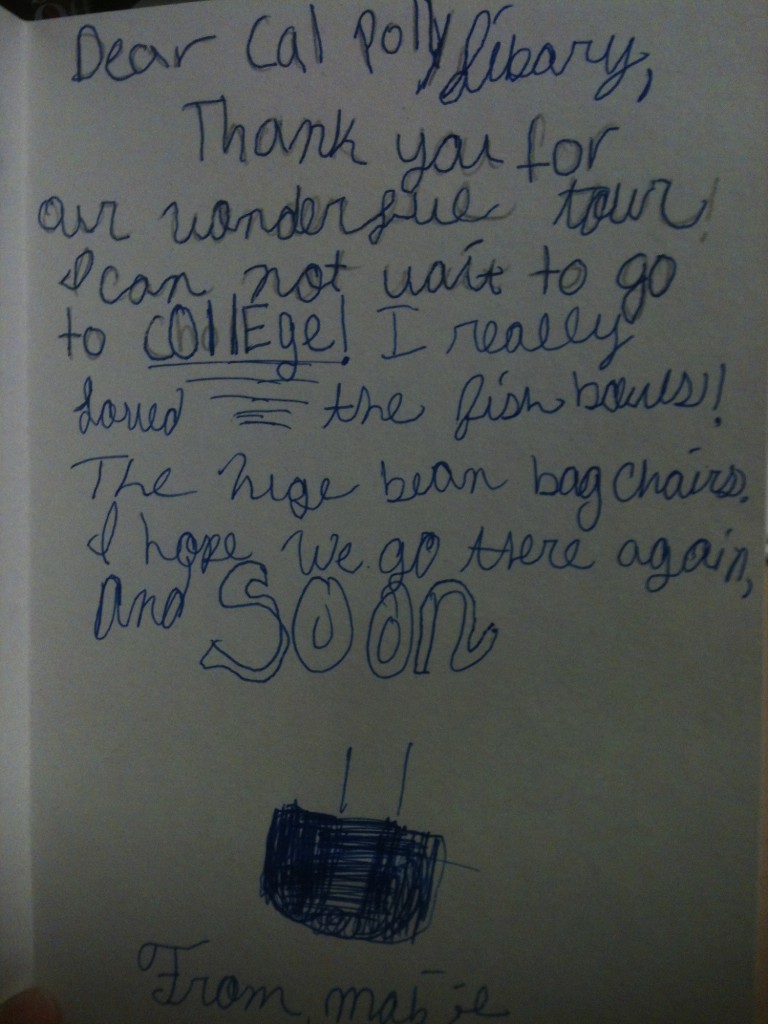 Dear Cal Polly Libary,
Thank you for
our wonderfule tour!
I can not wait to go
to COllEge! I really
Loved the fish bowls!
The huge bean bag chairs.
I hope We go there again,
And SOON
From,